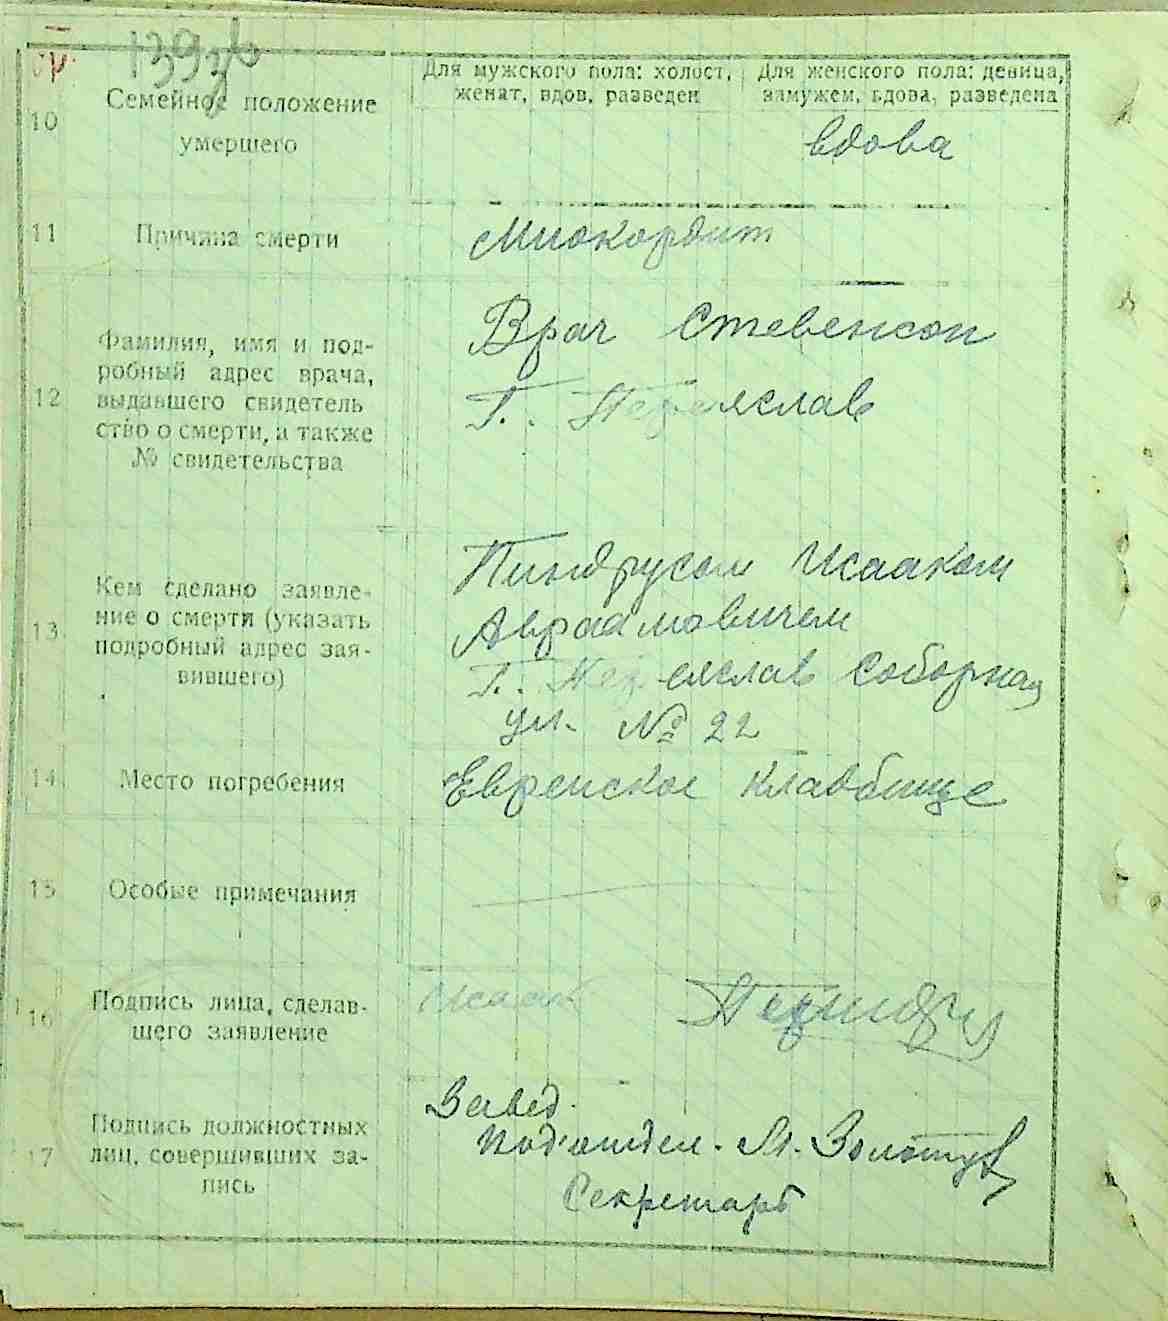 139зв
Для мужского пола: холост, женат, вдов, разведен
Для женского пола: девица, замужем, вдова, разведена
10
Семейное положение
умершего
вдова
11
Причина смерти
Миокордит
12
Фамилия, имя и под-
робный адрес врача,
выдавшего свидетель
ство о смерти, а также
№ свидетельства
Врач Стевенсон
Г. Переяслав
13
Кем сделано заявле-
ние о смерти (указать
подробный адрес зая-
вившего)
Пиндрусом Исааком
Авраамовичем
Г. Переяслав Соборная
ул. № 22
14
Место погребения
Еврейское кладбище
15
Особые примечания
16
Подпись лица, сделав-
шего заявление
Исаак
17
Подпись должностных
лиц, совершивших за-
пись
Завед.
под'отдел. М.
Секретарь